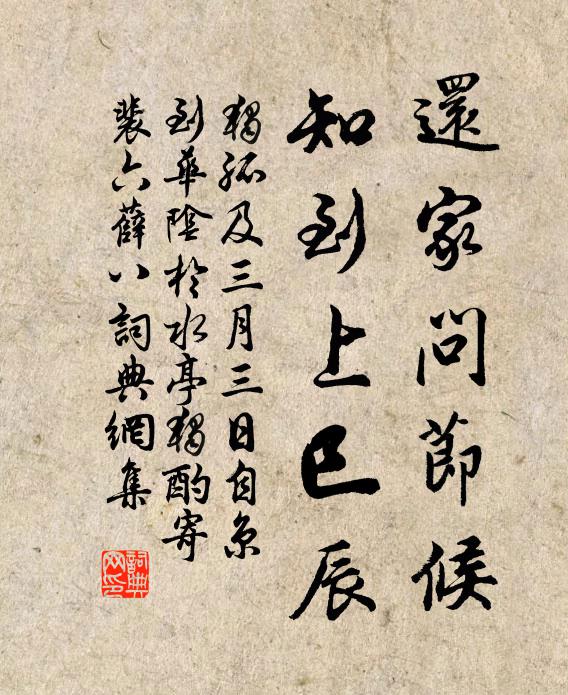 還家問節候
知到上巳辰
獨孤及三月三日自京
到華陰於水亭獨酌寄
裴六薛八詞典網集
詞典網印